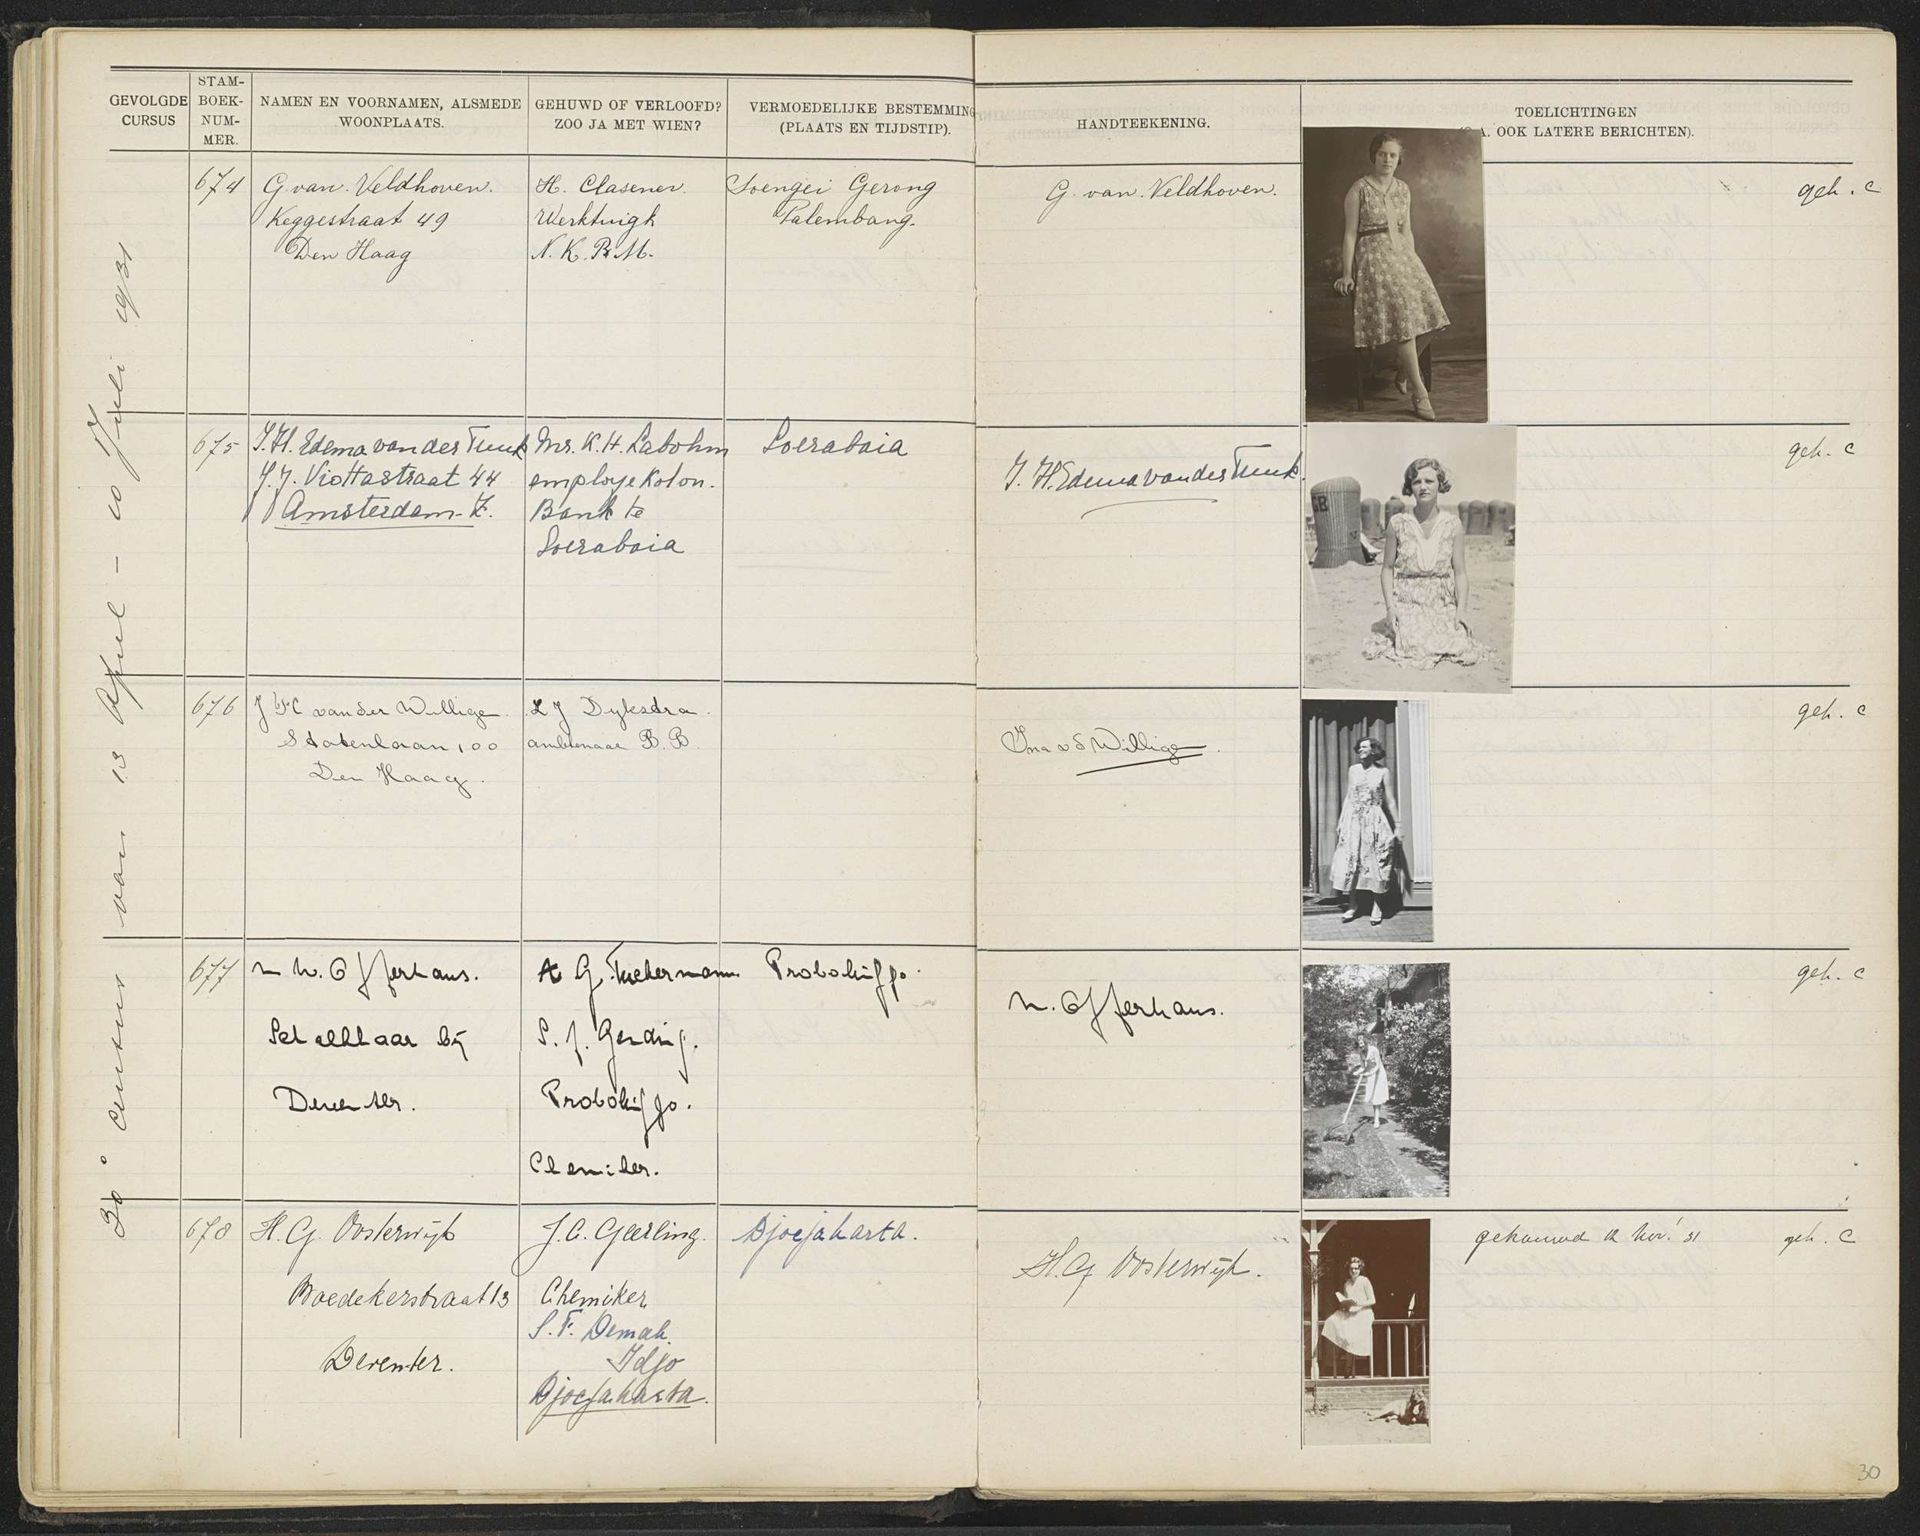 GEVOLGDE CURSUS
STAM-BOEK-NUM-MER.
NAMEN EN VOORNAMEN, ALSMEDE WOONPLAATS.
GEHUWD OF VERLOOFD? ZOO JA MET WIEN?
VERMOEDELIJKE BESTEMMING (PLAATS EN TIJDSTIP).
HANDTEEKENING.
TOELICHTINGEN
A. OOK LATERE BERICHTEN).
30e cursus van 13 April – 10 Juli 1931
674
G. van Veldhoven.
Keggestraat 49
Den Haag
H. Clasener.
Werktuigk
N. K. P. M.
Soengei Gerong
Palembang.
G. van Veldhoven.
geh. C
675
J. H. Edema van der Tuuk
J. J. Viottastraat 44
Amsterdam-Z.
Mr. K. H. Labohm
employe Kolon.
Bank te
Soerabaia
Soerabaia
J. H. Edema van der Tuuk.
geh. C
676
J F C van der Willigen
Statenlaan 100
Den Haag.
L J Dyksdra
ambtenaar B. B.
Ina v d Willigen.
geh. C
677
W. Offerhaus.
Schalkhaar bij
Deventer.
A G
S. f. Gending.
Probolinggo.
Chemiker.
Probolinggo.
Offerhaus.
geh. C
678
H. G. Oosterwijk
Boedekerstraat 13
Deventer.
J. C. Geerling.
Chemiker
S. F. Demak.
Idjo
Djocjakarta.
Djocjakarta.
H. G. Oosterwijk.
gehouwd 12 Nov. '31
geh. C
30